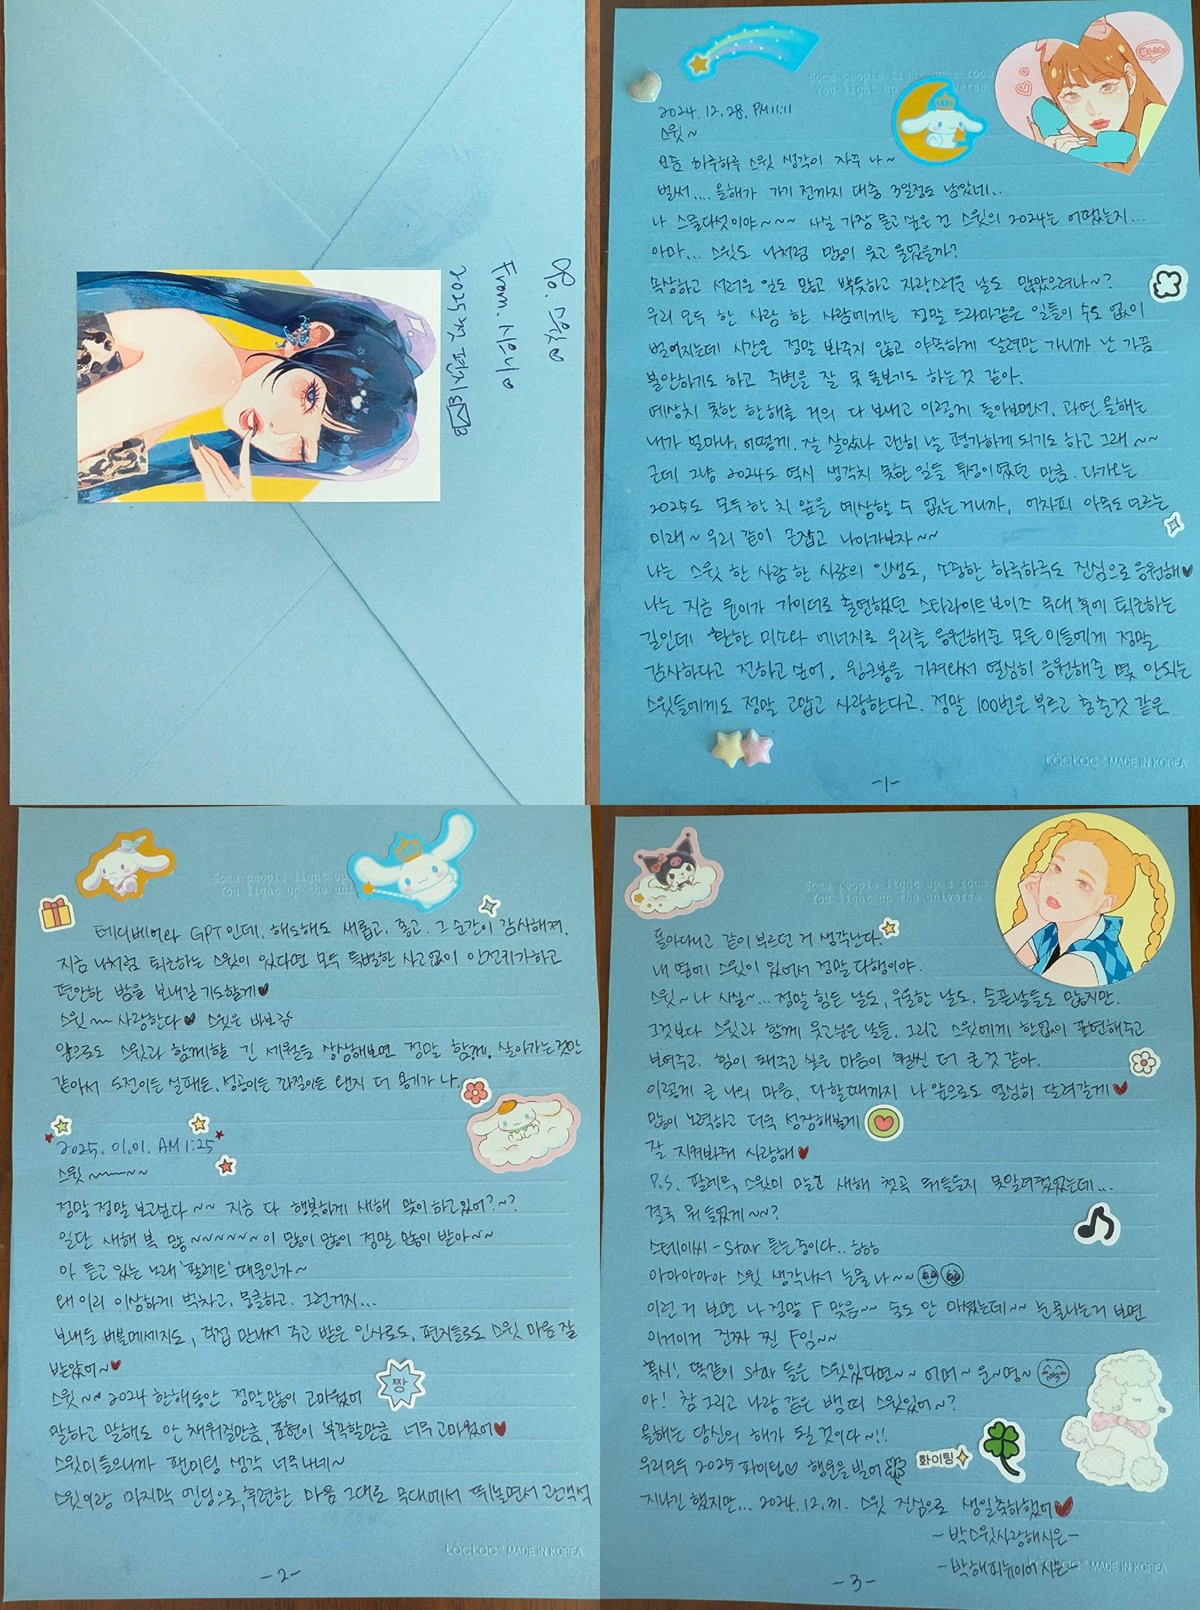 To. 스윗♡
From. 시은이♡
2025첫 편지
Some people light up a room
You light up the universe
2024. 12. 28. PM 11:11
스윗~
요즘 하루하루 스윗 생각이 자꾸 나~
벌써.... 올해가 가기 전까지 대충 3일정도 남았네..
나 스물다섯이야~~~ 사실 가장 묻고 싶은 건 스윗의 2024는 어땠는지...
아마... 스윗도 나처럼 많이 웃고 울었을까?
속상하고 서러운 일도 많고 뿌듯하고 자랑스러운 날도 많았으려나~?
우리 모두 한 사람 한 사람에게는 정말 드라마같은 일들이 수도 없이
벌어지는데 시간은 정말 봐주지 않고 야속하게 달려만 가니까 난 가끔
불안하기도 하고 주변을 잘 못 돌보기도 하는 것 같아.
예상치 못한 한해를 거의 다 보내고 이렇게 돌아보면서, 과연 올해는
내가 얼마나, 어떻게, 잘 살았나 괜히 날 평가하게 되기도 하고 그래~~
근데 그냥 2024도 역시 생각치 못한 일들 투성이였던 만큼. 다가오는
2025도 모두 한 치 앞을 예상할 수 없는거니까, 어차피 아무도 모르는
미래~ 우리 같이 손잡고 나아가보자~~
나는 스윗 한 사람 한 사람의 인생도, 소중한 하루하루도 진심으로 응원해♥
나는 지금 윤이가 가이더로 출연했던 스타라이트 보이즈 무대 후에 퇴근하는
길인데 환한 미소와 에너지로 우리를 응원해준 모든 이들에게 정말
감사하다고 전하고 싶어, 윙크봉을 가져와서 열심히 응원해준 몇 안되는
스윗들에게도 정말 고맙고 사랑한다고. 정말 100번은 부르고 춤춘것 같은
toctoc MADE IN KOREA
-1-
Some people light up
You light up the univer
테디베어와 GPT인데, 해도해도 새롭고, 좋고, 그 순간이 감사해져.
지금 나처럼 퇴근하는 스윗이 있다면 모두 특별한 사고없이 안전귀가하고
편안한 밤을 보내길 기도할게♥
스윗~~ 사랑한다♥ 스윗은 바보랑
앞으로도 스윗과 함께할 긴 세월을 상상해보면 정말 함께, 살아가는것만
같아서 도전이든 실패든, 성공이든 좌절이든 왠지 더 용기가 나.
2025. 01.01. AM 1:25
스윗~~~~
정말 정말 보고싶다~~ 지금 다 행복하게 새해 맞이 하고있어?~?
일단 새해 복 많~~~~~~이 많이 많이 정말 많이 받아~~
아 듣고 있는 노래 '팔레트' 때문인가~
왜 이리 이상하게 벅차고, 뭉클하고. 그런거지...
보내준 버블메세지도, 직접 만나서 주고 받은 인사로도, 편지들로도 스윗 마음 잘
받았어~♥
짱
스윗~♡ 2024 한해동안 정말많이 고마웠어
말하고 말해도 안 채워질만큼, 표현이 부족할만큼 너무 고마웠어♥
스윗미들으니까 팬미팅 생각 너무나네~
스윗이랑 마지막 엔딩으로, 후련한 마음 그대로 무대에서 뛰놀면서 관객석
toctoc MADE IN KOREA
-2-
Some people light up a room
You light up the universe
돌아다니고 같이 부르던 거 생각난다.
내 옆에 스윗이 있어서 정말 다행이야.
스윗~ 나 사실~... 정말 힘든 날도, 우울한 날도, 슬픈날들도 많지만,
그것보다 스윗과 함께 웃고싶은 날들, 그리고 스윗에게 한없이 표현해주고
보여주고, 힘이 돼주고 싶은 마음이 훨씬 더 큰 것 같아.
이렇게 큰 나의 마음, 다할때까지 나 앞으로도 열심히 달려갈게♥
많이 노력하고 더욱 성장해볼게
잘 지켜봐줘 사랑해♥
P.S. 팔레트, 스윗미 말고 새해 첫곡 뭐들을지 못알려줬었는데...
결국 뭐 들었게~~?
스테이씨 - Star 듣는중이다.. 흐흐흐
아아아아아 스윗 생각나서 눈물 나~~
이런 거 보면 나 정말 F 맞음~~ 술도 안 마셨는데~~ 눈물나는거 보면
이거이거 진짜 찐 F임~~
혹시! 똑같이 Star 들은 스윗있다면~~ 어머~ 운~명~
아! 참 그리고 나랑 같은 뱀띠 스윗있어~?
올해는 당신의 해가 될 것이다~!!
우리모두 2025 파이팅♡ 행운을 빌어
화이팅
지나긴 했지만... 2024.12.31. 스윗 진심으로 생일축하했어♥
-박스윗사랑해시은-
-박해피뉴이어시은-
toctoc MADE IN KOREA
-3-